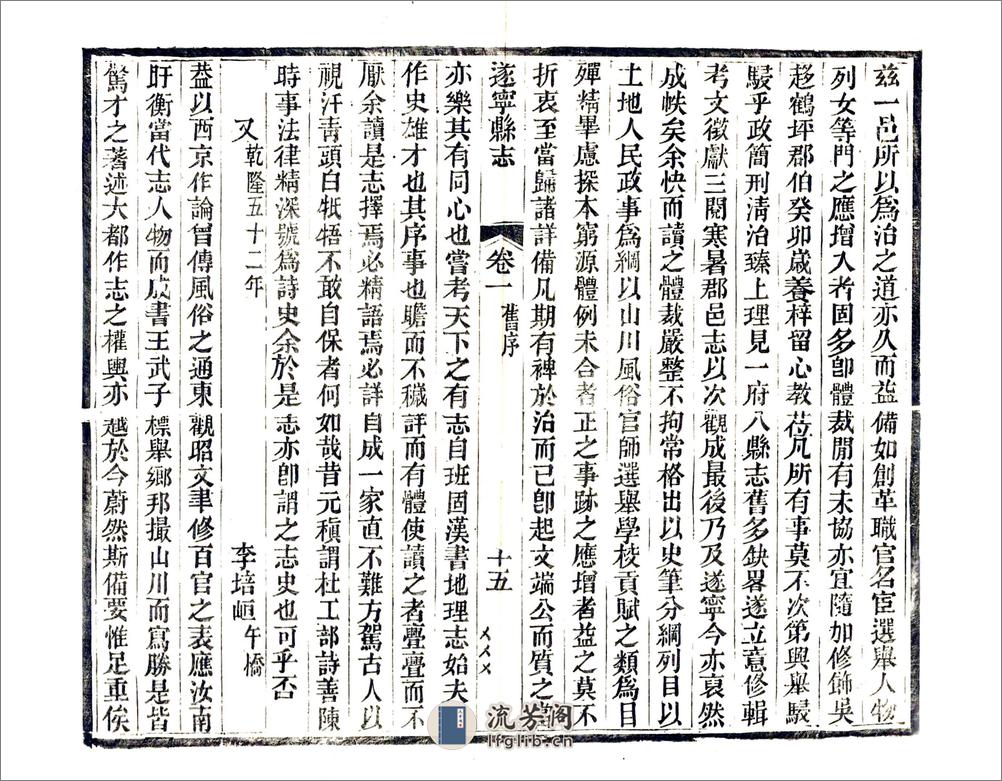 兹一邑所以爲治之道亦久而益備如創革職官名宦選舉人物
列女等門之應增入者固多卽體裁閒有未協亦宜隨加修飾吳
趨鶴坪郡伯癸卯歲養梓留心教莅凡所有事莫不次第興舉駸
駸乎政簡刑淸治臻上理見一府八縣志舊多缺畧遂立意修輯
考文徵獻三閱寒暑郡邑志以次觀成最後乃及遂寧今亦裒然
成帙矣余快而讀之體裁嚴整不拘常格出以史筆分綱列目以
土地人民政事爲綱以山川風俗官師選舉學校貢賦之類爲目
殫精畢慮探本窮源體例未合者正之事跡之應增者益之莫不
折衷至當歸諸詳備凡期有裨於治而已卽起文端公而質之
遂寧縣志
卷一
舊序
十五
亦樂其有同心也嘗考天下之有志自班固漢書地理志始夫
作史雄才也其序事也贍而不穢詳而有體使讀之者亹亹而不
厭余讀是志擇焉必精語焉必詳自成一家直不難方駕古人以
視汗靑頭白牴牾不敢自保者何如哉昔元稹謂杜工部詩善陳
時事法律精深號爲詩史余於是志亦卽謂之志史也可乎否
又
乾隆五十二年
李培峘
午橋
葢以西京作論曾傳風俗之通東觀昭文聿修百官之表應汝南
盱衡當代志人物而成書王武子標舉鄉邦撮山川而寫勝是皆
驚才之著述大都作志之權輿亦越於今蔚然斯備要惟足重俟
流芳閣
lfglib.cn